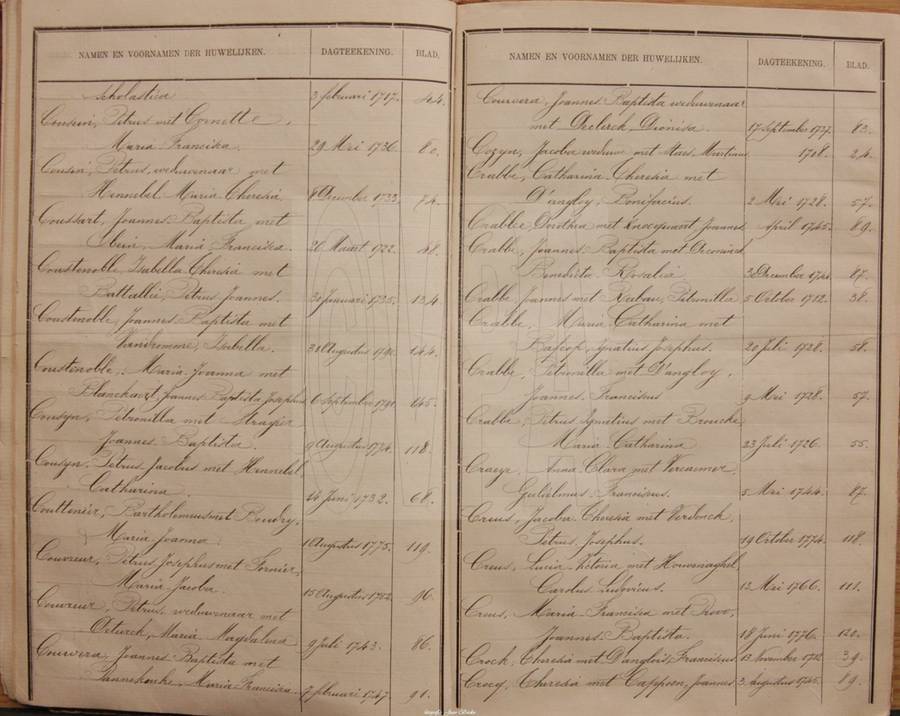 NAMEN EN VOORNAMEN DER HUWELIJKEN. DAGTEEKENING. BLAD.
Scholastica 3 februari 1717. 44.
Cousein, Petrus met Cornette.
Maria Francisca. 29 Mei 1736. 80.
Cousin, Petrus, weduwenaar met
Hennebel Maria Theresia 8 December 1733. 74.
Coussart, Joannes Baptista met
Maria Francisca. 26 Maart 1722. 48.
Coustenoble, Isabella Theresia met
Battallie, Petrus Joannes. 30 Januari 1735. 134.
Coustenoble, Joannes Baptista met
Vandromme, Isabella. 31 Augustus 144.
Coustenoble, Maria Joanna met
Planckaert, Joannes Baptista Josephus 6 September 1790. 145.
Cousyn, Petronilla met Strayer
Joannes Baptista. 9 Augustus 1774. 118.
Cousyn, Petrus Jacobus met Hennebel
Catharina. 14 Juni 1732. 68.
Couttenier, Bartholomeus met Boudry,
Maria Joanna. 1 Augustus 1775. 119.
Couvreur, Petrus Josephus met Fornier,
Maria Jacoba. 15 Augustus 1752. 96.
Couvreur, Petrus weduwenaar met
Deturck, Maria Magdalena 9 Juli 1743. 86.
Couwera, Joannes Baptista met
Maria Francisca. 7 februari 1747. 91.
NAMEN EN VOORNAMEN DER HUWELIJKEN. DAGTEEKENING. BLAD.
Couvera, Joannes Baptista weduwenaar
met Declerck, Dionisa. 17 September 1737. 82.
Cozyn, Jacoba weduwe met Staes, Martinus 1708. 24.
Crabbe, Catharina Theresia met
D'angloy, Bonifacius. 2 Mei 1728. 57.
Crabbe, Dorothea met Knockaert, Joannes April 1745. 89.
Crabbe, Joannes Baptista met
Benedicta Rosalia 3 December 87.
Crabbe, Joannes met Rubau, Petronilla 5 October 1712. 38.
Crabbe, Maria Catharina met
Bascop, Ignatius Josephus. 20 Juli 1728. 58.
Crabbe, Petronilla met D'angloy.
Joannes Franciscus 9 Mei 1728. 57.
Crabbe, Petrus Ignatius met Broucke
Maria Catharina 23 Juli 1726. 55.
Craeye, Anna Clara met Vercamer
Gulielmus Franciscus. 5 Mei 1744. 87.
Creus, Jacoba Theresia met Verdonck,
Petrus Josephus. 19 October 1774. 118.
Creus, Lucia Victoria met Houvenaghel
Carolus Ludovicus. 13 Mei 1766. 111.
Creus, Maria Francisca met Provo,
Joannes Baptista. 18 Juni 1776. 120.
Crock, Theresia met D'anglois, Franciscus 13 November 1712. 39.
Crocq, Theresia met Cappoen, Joannes 3 Augustus 1745. 89.